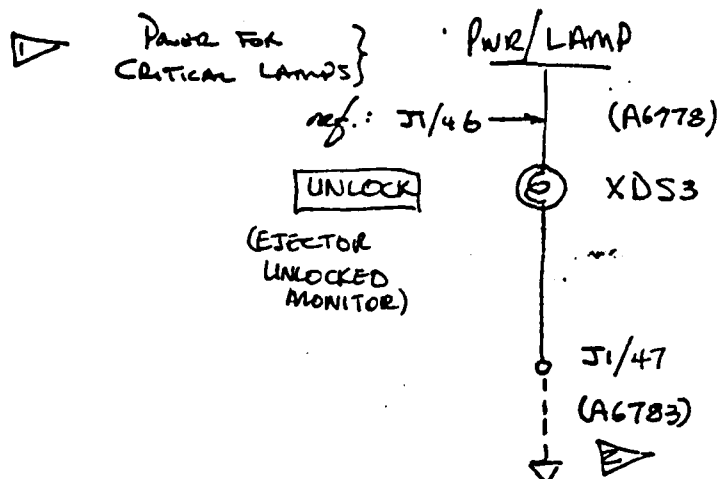 1 POWER FOR CRITICAL LAMPS}
PWR/LAMP
ref.: J1/46 (A6778)
UNLOCK
XDS3
(EJECTOR
UNLOCKED
MONITOR)
J1/47
(A6783)